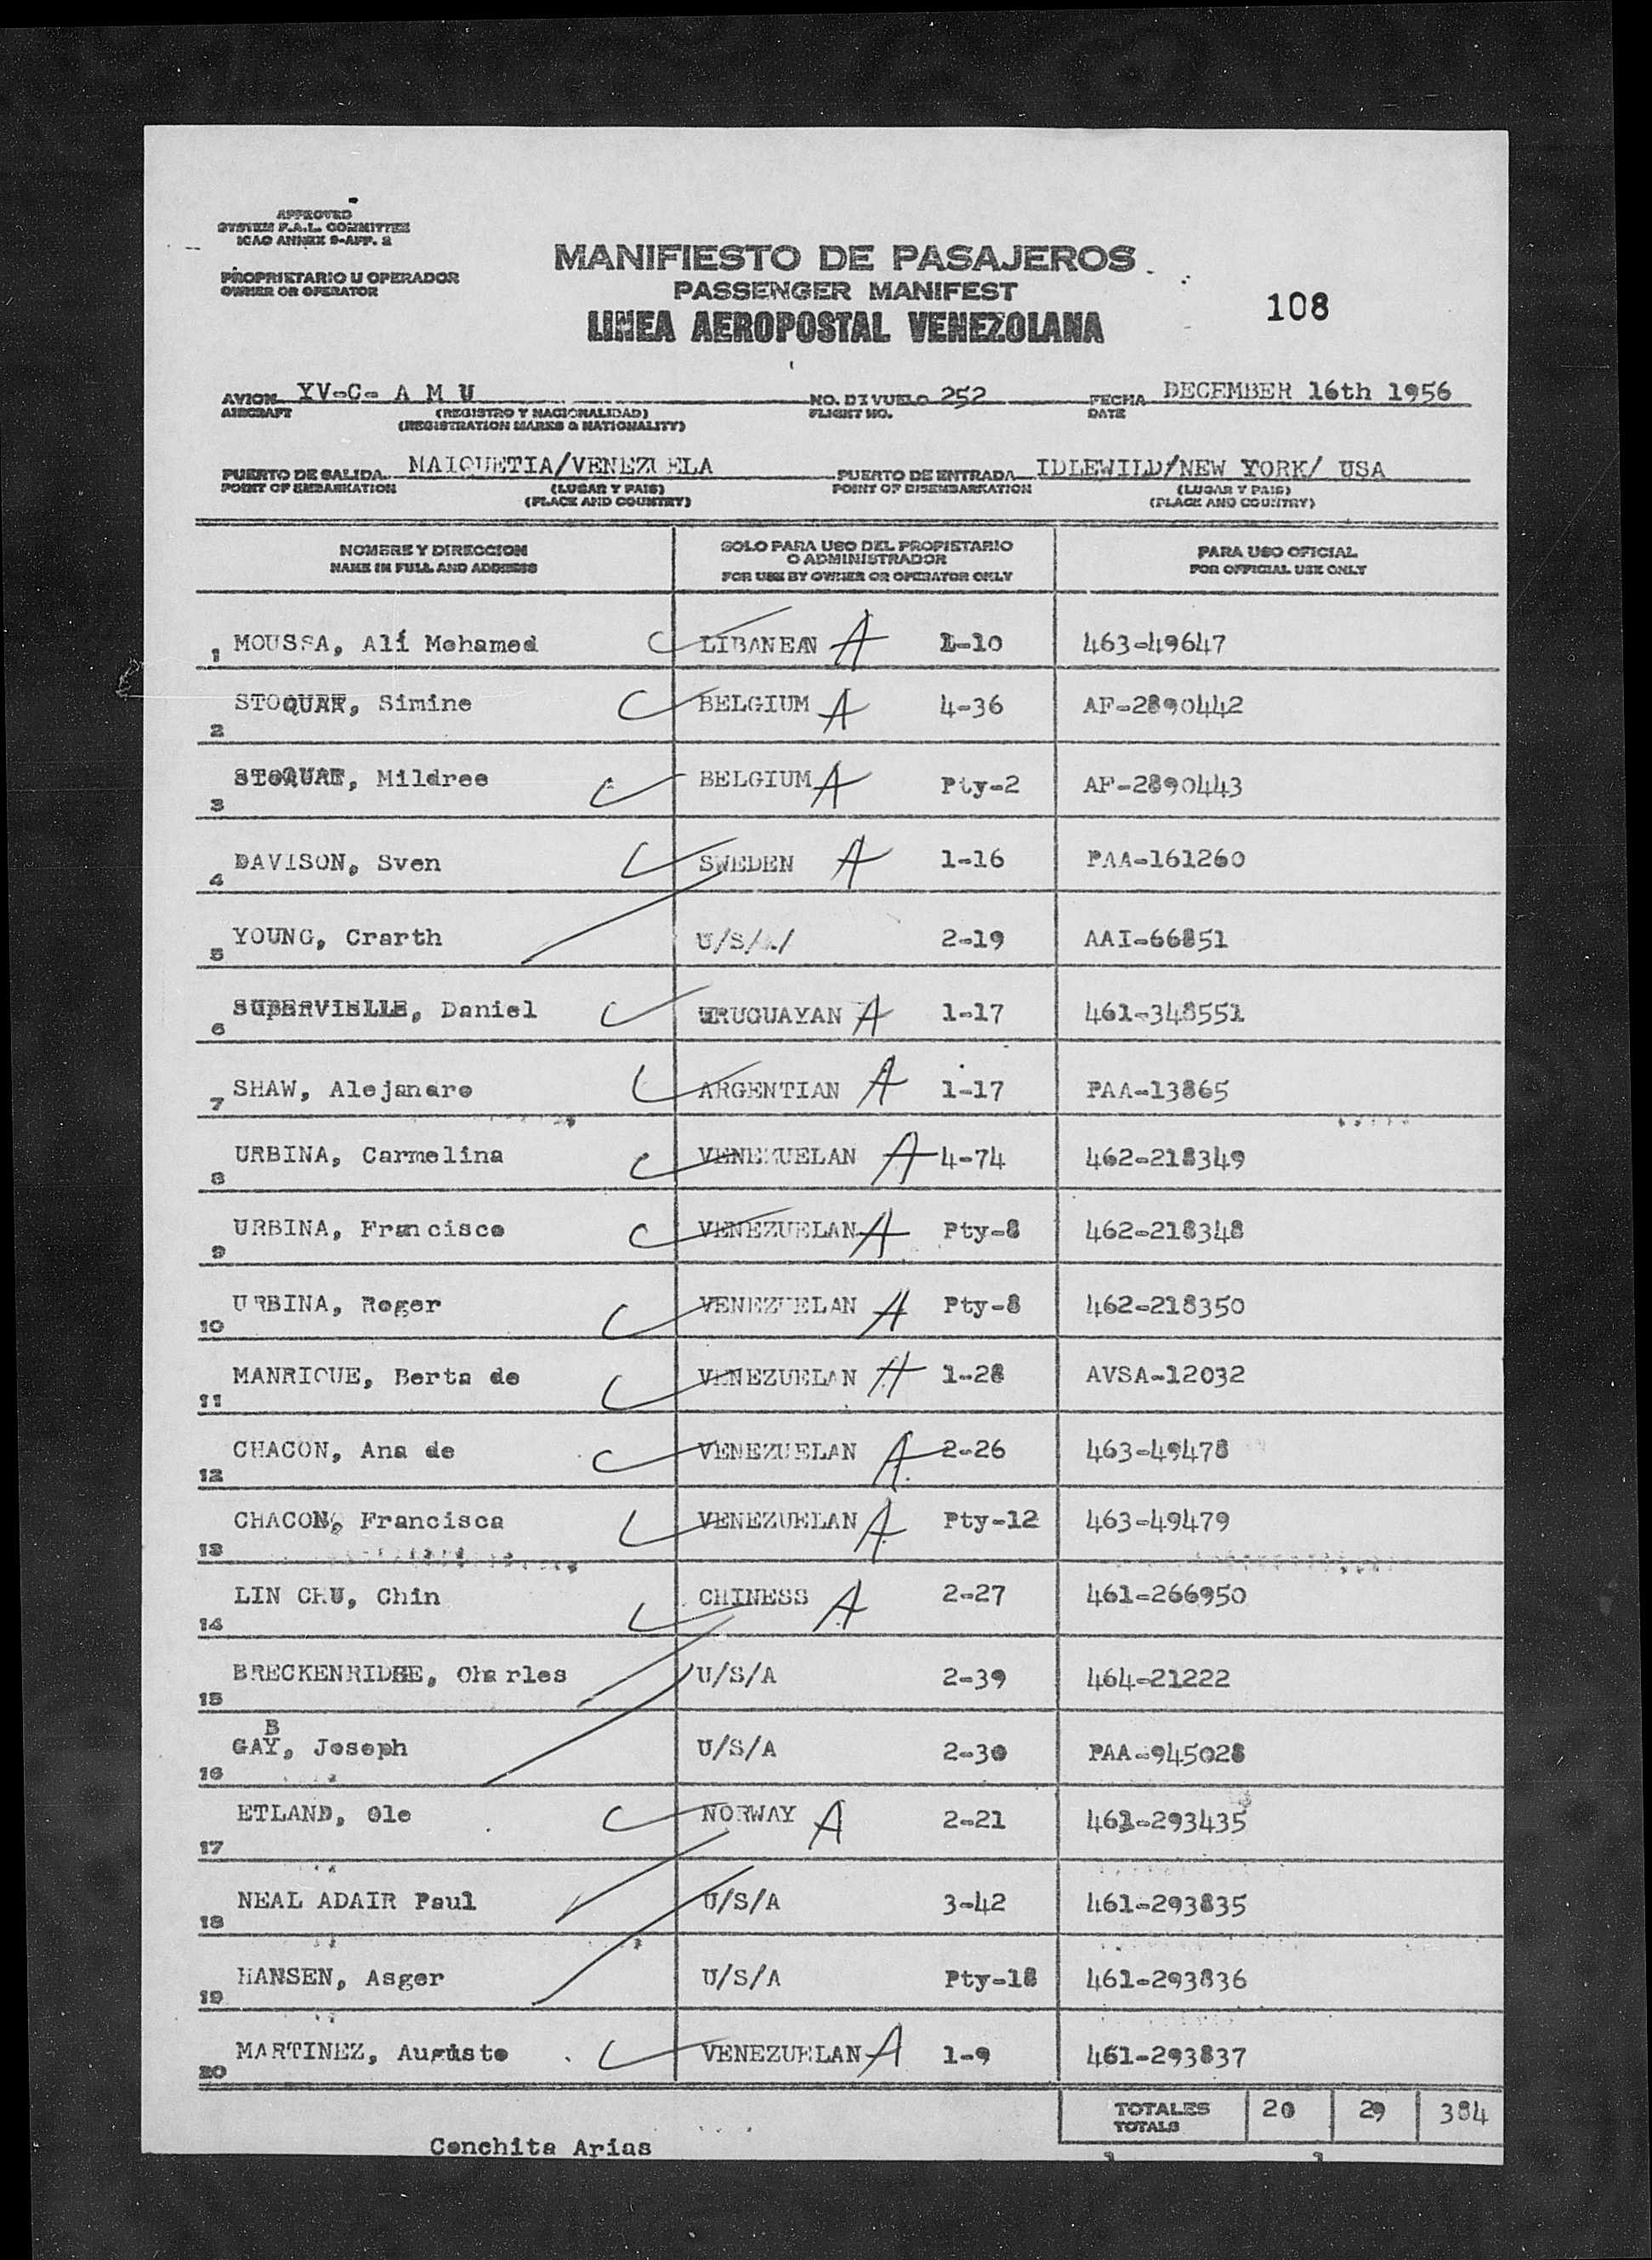 APPROVED
SYSTEM F.A.L. COMMITTEE
ICAO ANNEX 9-APP. 2
PROPRIETARIO U OPERADOR
OWNER OR OPERATOR
MANIFIESTO DE PASAJEROS
PASSENGER MANIFEST
LINEA AEROPOSTAL VENEZOLANA
108
AVION YV-C- A M U NO. DE VUELO 252 FECHA DECEMBER 16th 1956
AIRCRAFT (REGISTRO Y NACIONALIDAD) FLIGHT NO. DATE
(REGISTRATION MARKS & NATIONALITY)
PUERTO DE SALIDA MAIQUETIA/VENEZUELA PUERTO DE ENTRADA IDLEWILD/NEW YORK/ USA
POINT OF EMBARKATION (LUGAR Y PAIS) POINT OF DISEMBARKATION (LUGAR Y PAIS)
(PLACE AND COUNTRY) (PLACE AND COUNTRY)
NOMBRE Y DIRECCION SOLO PARA USO DEL PROPIETARIO O ADMINISTRADOR PARA USO OFICIAL
NAME IN FULL AND ADDRESS FOR USE BY OWNER OR OPERATOR ONLY FOR OFFICIAL USE ONLY
1 MOUSSA, Alí Mohamed LIBANEAN A 1-10 463-49647
2 Simine BELGIUM A 4-36 AF-2890442
3 Mildree BELGIUM A Pty-2 AF-2890443
4 DAVISON, Sven SWEDEN A 1-16 PAA-161260
5 YOUNG, Crarth U/S/A/ 2-19 AAI-66851
6 SUPERVIELLE, Daniel URUGUAYAN A 1-17 461-348551
7 SHAW, Alejandro ARGENTIAN A 1-17 PAA-13865
8 URBINA, Carmelina VENEZUELAN A 4-74 462-218349
9 URBINA, Francisco VENEZUELAN A Pty-8 462-218348
10 URBINA, Roger VENEZUELAN A Pty-8 462-218350
11 MANRIQUE, Berta de VENEZUELAN A 1-28 AVSA-12032
12 CHACON, Ana de VENEZUELAN A 2-26 463-49478
13 CHACON, Francisca VENEZUELAN A Pty-12 463-49479
14 LIN CHU, Chin CHINESS A 2-27 461-266950
15 BRECKENRIDGE, Charles U/S/A 2-39 464-21222
B
16 GAY, Joseph U/S/A 2-30 PAA-945028
17 ETLAND, Ole NORWAY A 2-21 461-293435
18 NEAL ADAIR Paul U/S/A 3-42 461-293835
19 HANSEN, Asger U/S/A Pty-18 461-293836
20 MARTINEZ, Auguste VENEZUELAN A 1-9 461-293837
TOTALES 20 29 384
TOTALS
Conchita Arias